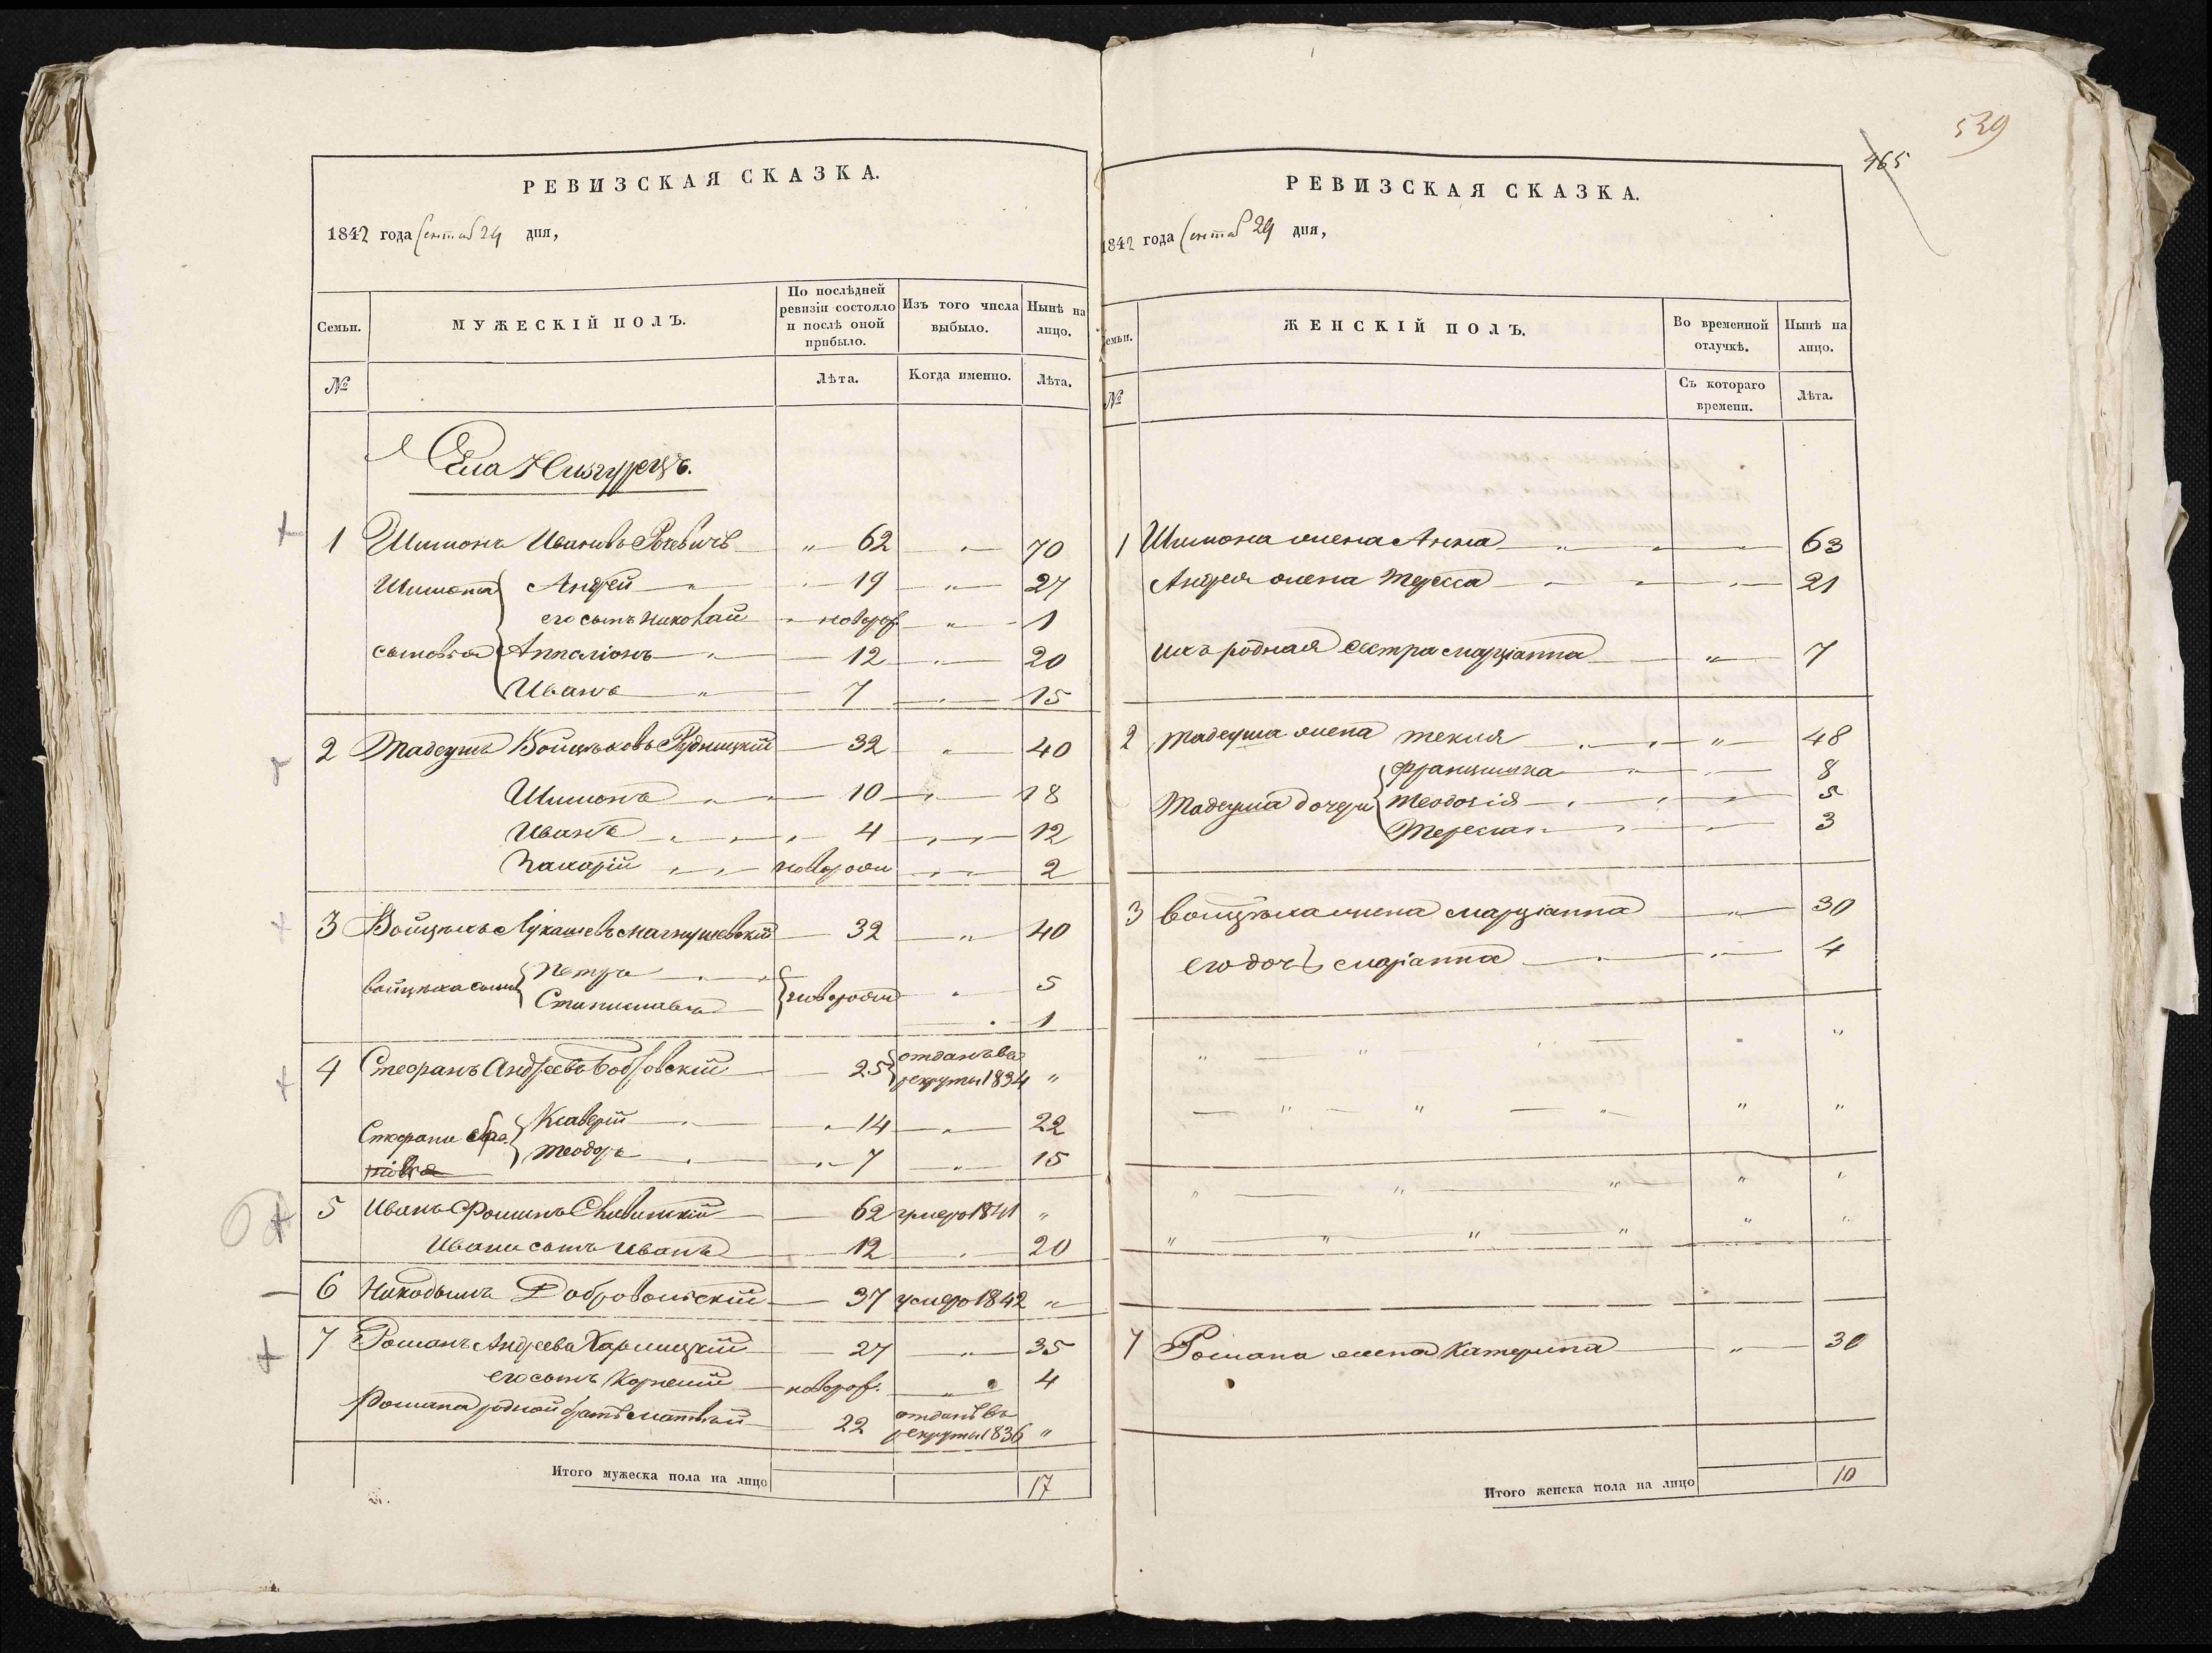 РЕВИЗСКАЯ СКАЗКА.
1842 года Сентяб 24 дня,
Семьи.
МУЖЕСКІЙ ПОЛЪ.
По послѣдней ревизіи состояло и послѣ оной прибыло.
Изъ того числа выбыло.
Нынѣ на лицо.
№
Лѣта.
Когда именно.
Лѣта.
1 Шимонъ Ивановъ 62 " 70
Шимона Андрей " 19 " 27
его сынъ Николай новорож " 1
сыновья Апполіонъ " 12 " 20
Иванъ " 7 " 15
2 Тадеушъ Войцѣховъ Рудницкій 32 " 40
Шимонъ " 10 " 18
Иванъ " 4 " 12
Захарій " новорож " 2
3 Войцѣхъ Лукашевъ Магнушевскій 32 " 40
Войцѣха сыны Петръ " новорожд " 5
Станиславъ " 1
4 Стефанъ Андреевъ Бобровскій 25 отданъ въ рекруты 1834 "
Стефана Ксаверій " 14 " 22
Теодоръ " 7 " 15
5 Иванъ Фоминъ 62 умеръ 1841 "
Ивана сынъ Иванъ 12 " 20
6 Никодымъ Добровольскій 37 умеръ 1842 "
7 Романъ Андреевъ 27 " 35
его сынъ Корнелій новорож. " 4
Романа родной братъ Матвѣй 22 отданъ въ рекруты 1836 "
Итого мужеска пола на лицо 17
539
465
РЕВИЗСКАЯ СКАЗКА.
1842 года Сентяб 24 дня,
Семьи.
ЖЕНСКІЙ ПОЛЪ.
Во временной отлучкѣ.
Нынѣ на лицо.
№
Съ котораго времени.
Лѣта.
1 Шимона жена Анна " " 63
Андрея жена Тересса " " 21
ихъ родная сестра Марціанна " 7
2 Тадеуша жена Текля " " 48
Францишка " 8
Тадеуша дочери Теодозія " 5
Тересія " 3
3 Войцѣха жена Марціанна " 30
его дочь Маріанна " 4
7 Романа жена Катерина " 30
Итого женска пола на лицо 10